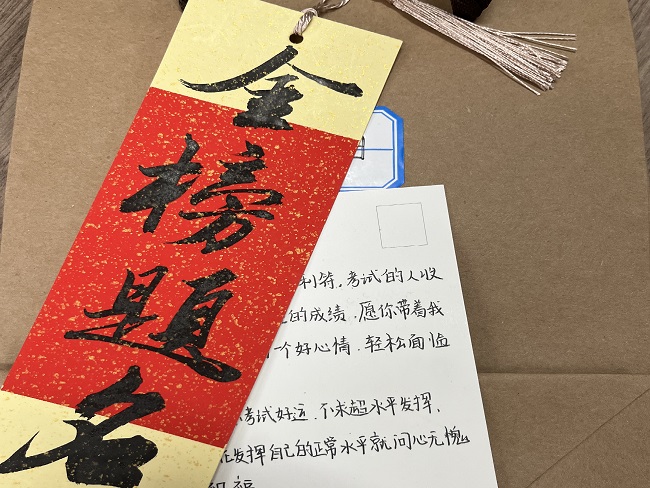 金榜題名
利符,考试的人收
的成绩.愿你带着我
个好心情,轻松面临
考试好运.不求超水平发挥,
发挥自己的正常水平就问心无愧